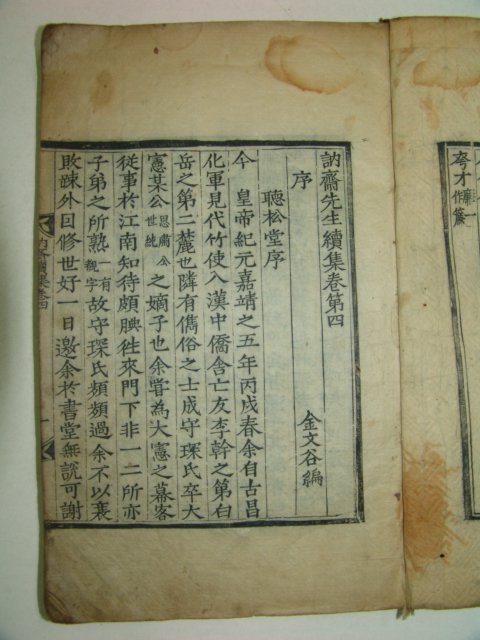 訥齋先生續集卷第四
序　金文谷編
聽松堂序
今　皇帝紀元嘉靖之五年丙戌春余自古昌
化軍見代竹使入漢中僑舍亡友李幹之第白
岳之第二麓也隣有儁俗之士成守琛氏卒大
憲某公 思肅公世純 之嫡子也余嘗為大憲之幕客
從事於江南知待頗腆徃來門下非一二所亦
子弟之所熟 一有親字 故守琛氏頻頻過余不以衰
敗踈外回修世好一日邀余於書堂無説可謝
考才 廉一作簾